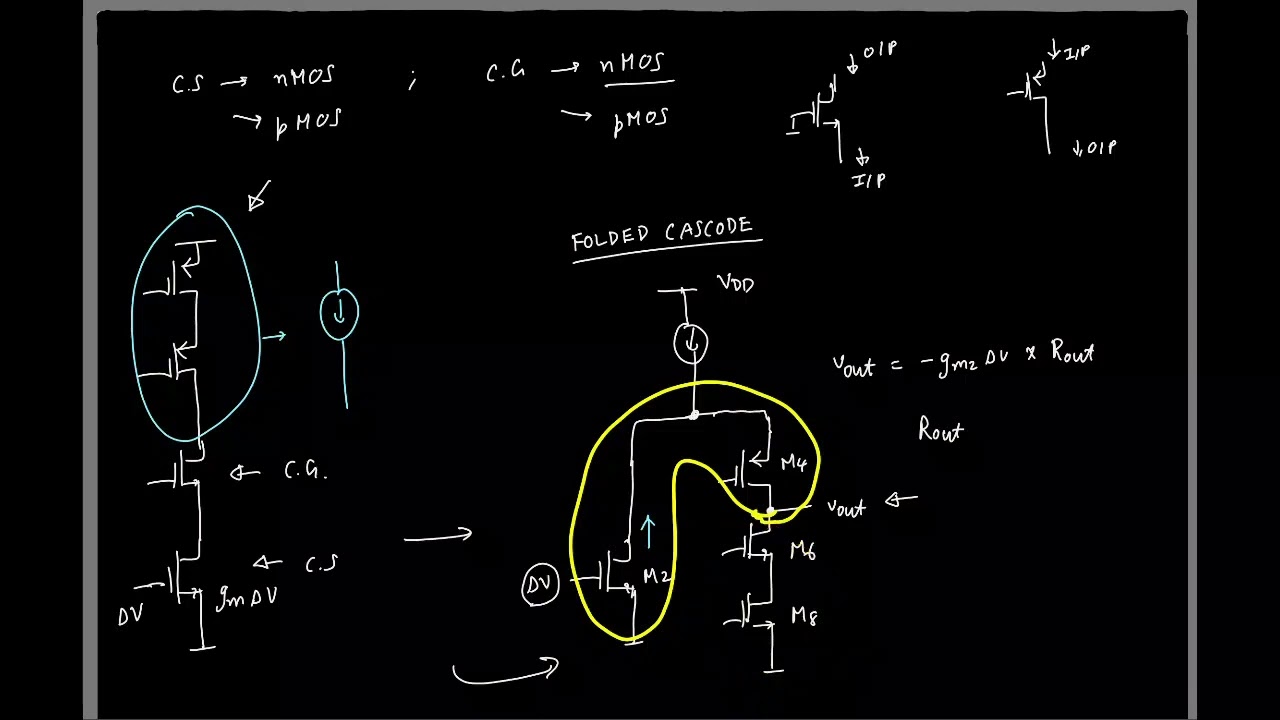 C.S → nMOS ; C.G → nMOS
→ pMOS → pMOS
O/P
I/P
I/P
O/P
FOLDED CASCODE
VDD
vout = -gm2 ΔV × Rout
Rout
C.G.
M4
vout
M6
C.S
ΔV
gm ΔV
ΔV
M2
M8